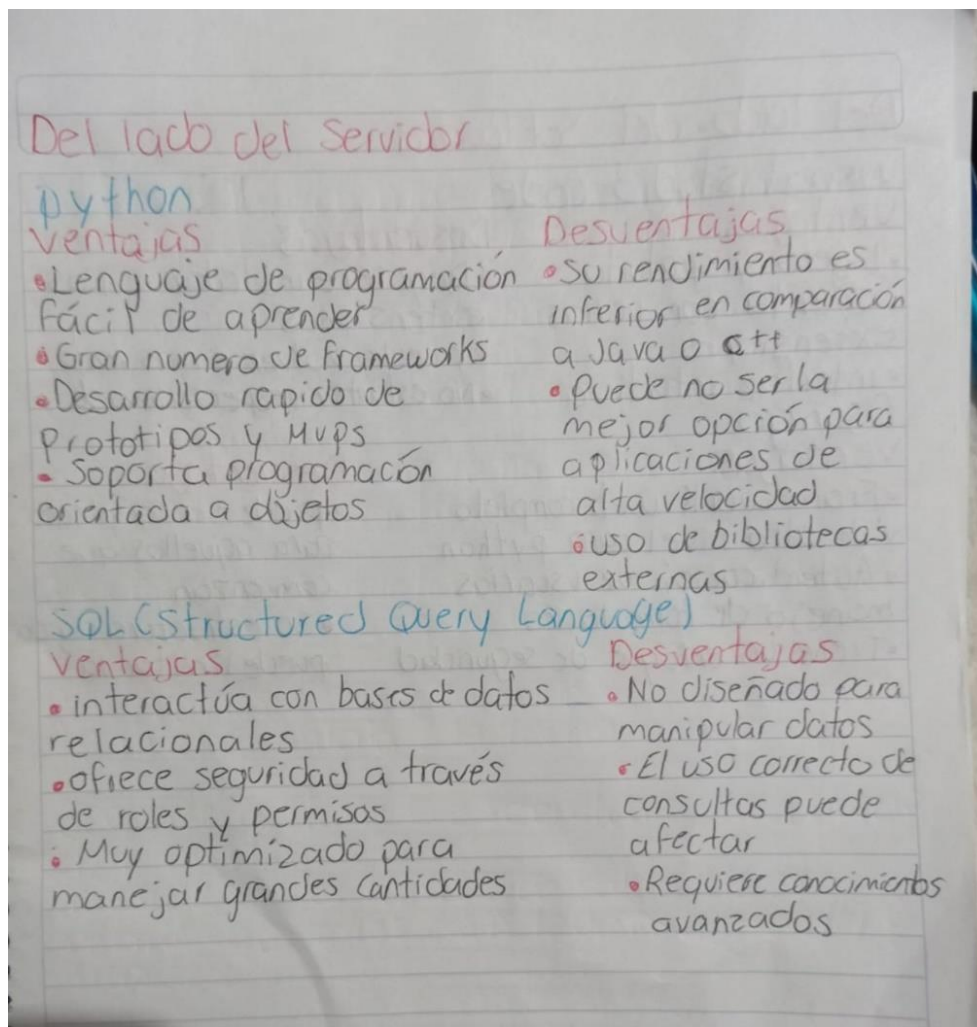 Del lado del servidor
python
Ventajas
•Lenguaje de programación
fácil de aprender
•Gran numero de frameworks
•Desarrollo rapido de
Prototipos y MVPs
•Soporta programación
orientada a objetos
Desventajas
•su rendimiento es
inferior en comparación
a Java o C++
•Puede no ser la
mejor opción para
aplicaciones de
alta velocidad
•uso de bibliotecas
externas
SQL (Structured Query Language)
Ventajas
•interactúa con bases de datos
relacionales
•ofrece seguridad a través
de roles y permisos
•Muy optimizado para
manejar grandes cantidades
Desventajas
•No diseñado para
manipular datos
•El uso correcto de
consultas puede
afectar
•Requiere conocimientos
avanzados